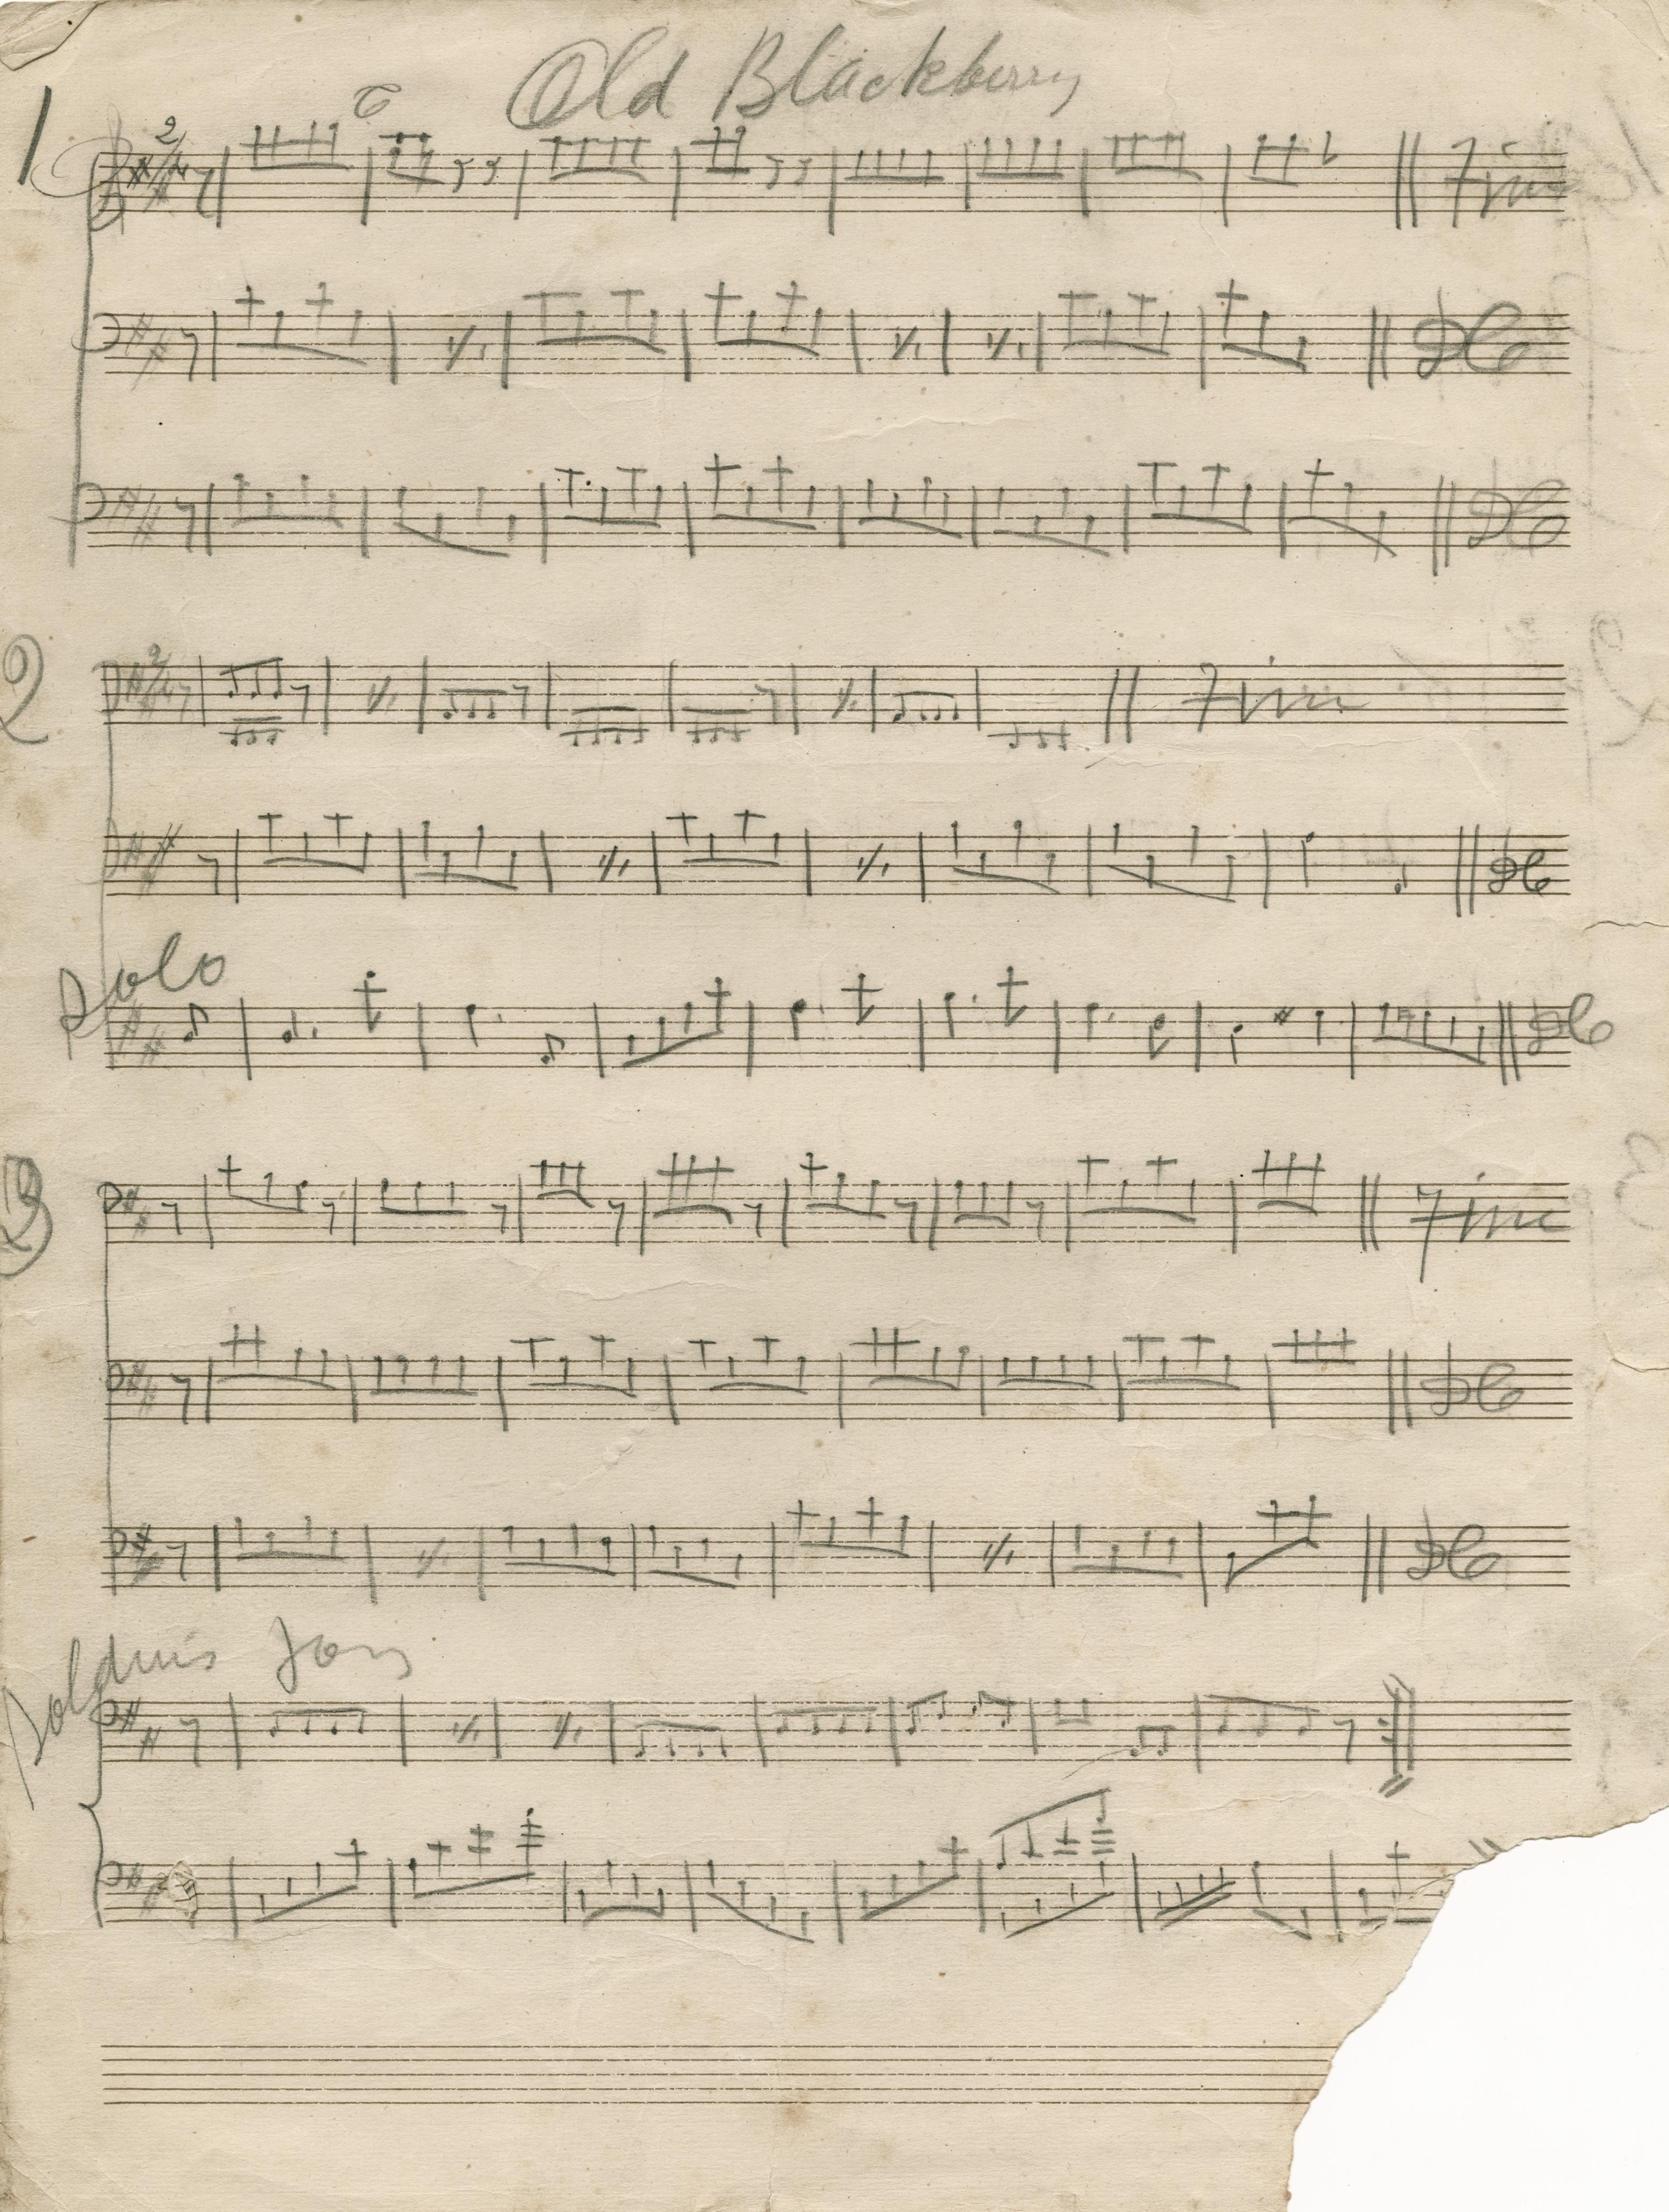 Old Blackberry
1
2/4
Fine
DC
DC
2
2/4
Fine
DC
Solo
DC
3
Fine
DC
DC